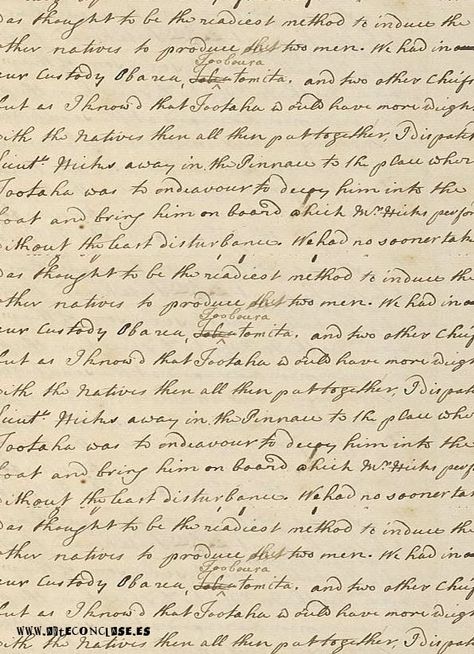 as thought to be the readiest method to induce the
other natives to produce two men. We had in o
Tooboura
our Custody Obarea, Toba tomita. and two other Chief
but as I know'd that Tootaha would have more weigh
with the Natives then all then put together, I dispatc
Lieut. Hicks away in the Pinnace to the place wher
Tootaha was to endeavour to decoy him into the
boat and bring him on board which Mr Hicks perfo
without the least disturbance. We had no sooner tak
as thought to be the readiest method to induce the
other natives to produce two men. We had in o
Tooboura
our Custody Obarea, Toba tomita. and two other Chief
but as I know'd that Tootaha would have more weigh
with the Natives then all then put together, I dispatc
Lieut. Hicks away in the Pinnace to the place wher
Tootaha was to endeavour to decoy him into the
boat and bring him on board which Mr Hicks perfo
without the least disturbance. We had no sooner tak
as thought to be the readiest method to induce the
other natives to produce two men. We had in o
Tooboura
our Custody Obarea, Toba tomita. and two other Chief
but as I know'd that Tootaha would have more weigh
with the Natives then all then put together, I dispatc